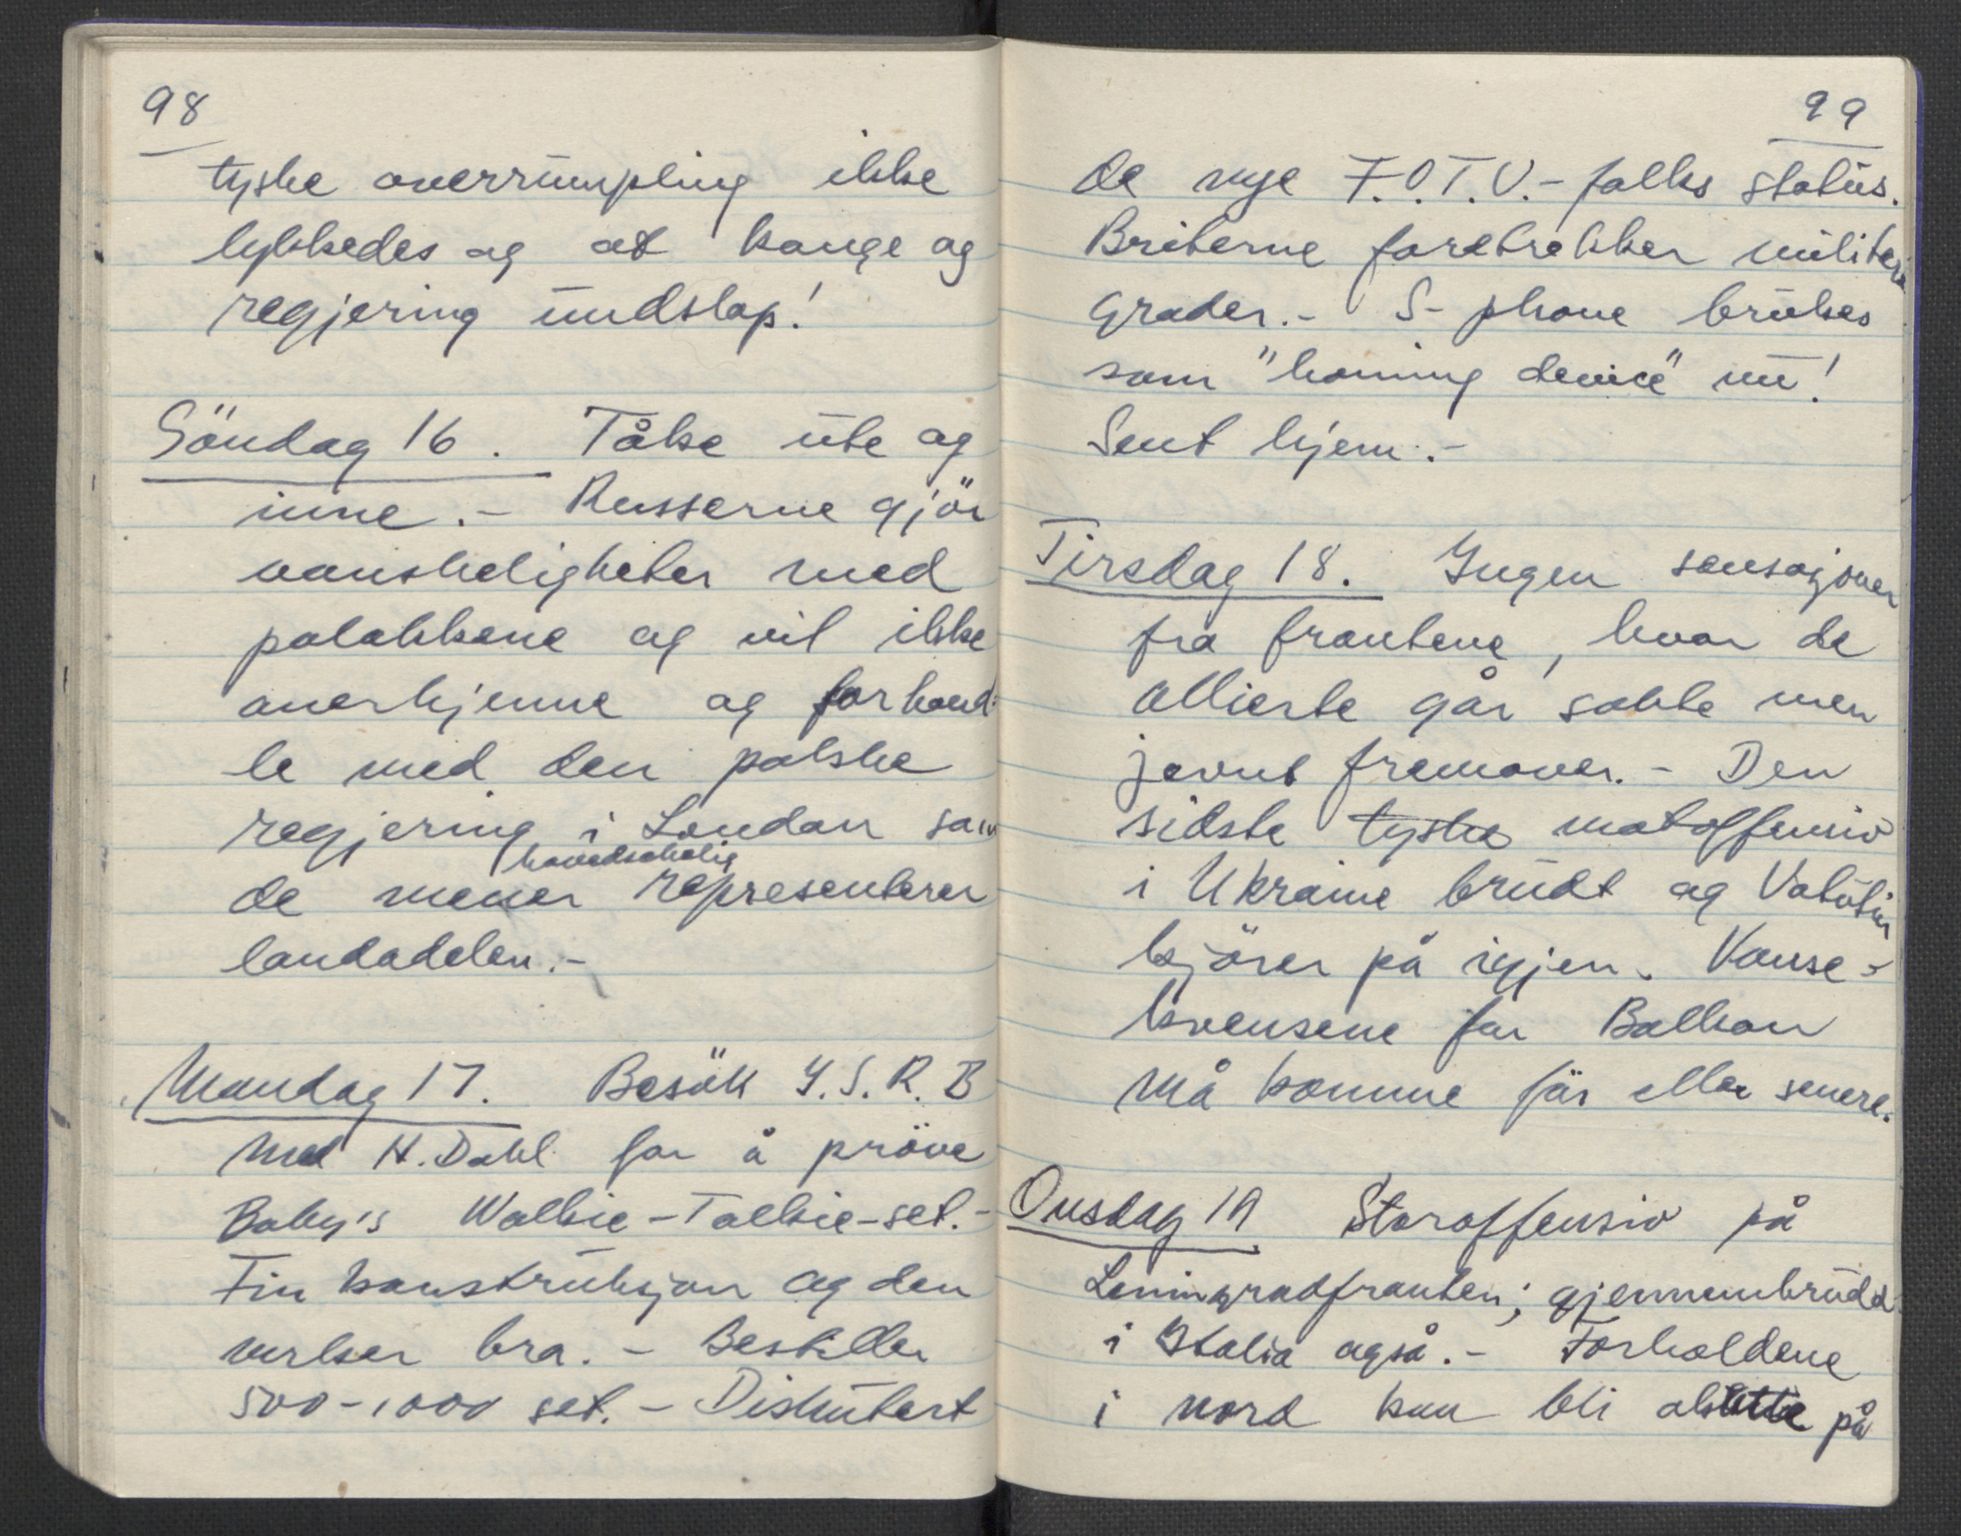 98
tyske overrumpling ikke
lykkedes og at konge og
regjering undslap!
Söndag 16. Tåke ute og
inne. - Russerne gjör
vanskeligheter med
polakkene og vil ikke
anerkjenne og forhand-
le med den polske
regjering i London som
hovedsakelig
de mener representerer
landadelen. -
Mandag 17. Besök I.S.R.B
med H. Dahl for å pröve
Baby's Walkie-Talkie-set. -
Fin konstruksjon og den
virker bra. - Bestiller
500-1000 set. - Diskutert
99
de nye F.O.T.U.-folks status.
Briterne foretrekker militære
grader. - S-phone brukes
som "homing device" nu!
Sent hjem. -
Tirsdag 18. Ingen sensasjoner
fra frontene, hvor de
allierte går sakte men
jevnt fremover. - Den
sidste tyske motoffensiv
i Ukraine brudt og Vatutin
kjörer på igjen. Konse-
kvensene for Balkan
må komme för eller senere.
Onsdag 19 Storoffensiv på
Leningradfronten; gjennembrudd
i Italia også. - Forholdene
i nord kan bli på